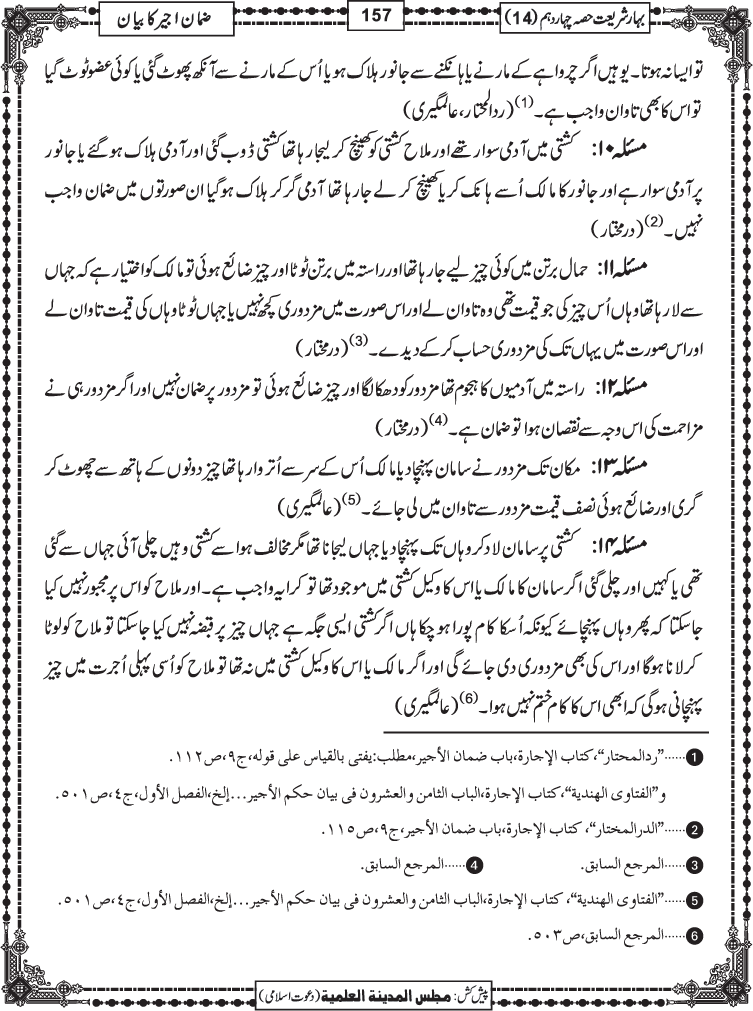 بہارشریعت حصہ چہاردہم (14)
157
ضمان اجیر کا بیان
تو ایسا نہ ہوتا۔ یوہیں اگر چرواہے کے مارنے یا ہانکنے سے جانور ہلاک ہو یا اُس کے مارنے سے آنکھ پھوٹ گئی یا کوئی عضو ٹوٹ گیا
تو اس کا بھی تاوان واجب ہے۔(1) (ردالمحتار، عالمگیری)
مسئلہ ۱۰: کشتی میں آدمی سوار تھے اور ملاح کشتی کو کھینچ کر لیجا رہا تھا کشتی ڈوب گئی اور آدمی ہلاک ہوگئے یا جانور
پر آدمی سوار ہے اور جانور کا مالک اُسے ہانک کر یا کھینچ کر لے جارہا تھا آدمی گر کر ہلاک ہوگیا ان صورتوں میں ضمان واجب
نہیں۔(2) (درمختار)
مسئلہ ۱۱: حمال برتن میں کوئی چیز لیے جارہا تھا اور راستہ میں برتن ٹوٹا اور چیز ضائع ہوئی تو مالک کو اختیار ہے کہ جہاں
سے لا رہا تھا وہاں اُس چیز کی جو قیمت تھی وہ تاوان لے اور اس صورت میں مزدوری کچھ نہیں یا جہاں ٹوٹا وہاں کی قیمت تاوان لے
اور اس صورت میں یہاں تک کی مزدوری حساب کرکے دیدے۔(3) (درمختار)
مسئلہ ۱۲: راستہ میں آدمیوں کا ہجوم تھا مزدور کو دھکا لگا اور چیز ضائع ہوئی تو مزدور پر ضمان نہیں اور اگر مزدور ہی نے
مزاحمت کی اس وجہ سے نقصان ہوا تو ضمان ہے۔(4) (درمختار)
مسئلہ ۱۳: مکان تک مزدور نے سامان پہنچا دیا مالک اُس کے سر سے اُتروا رہا تھا چیز دونوں کے ہاتھ سے چھوٹ کر
گری اور ضائع ہوئی نصف قیمت مزدور سے تاوان میں لی جائے۔(5) (عالمگیری)
مسئلہ ۱۴: کشتی پر سامان لاد کر وہاں تک پہنچا دیا جہاں لیجانا تھا مگر مخالف ہوا سے کشتی وہیں چلی آئی جہاں سے گئی
تھی یا کہیں اور چلی گئی اگر سامان کا مالک یا اس کا وکیل کشتی میں موجود تھا تو کرایہ واجب ہے۔ اور ملاح کو اس پر مجبور نہیں کیا
جاسکتا کہ پھر وہاں پہنچائے کیونکہ اُسکا کام پورا ہو چکا ہاں اگر کشتی ایسی جگہ ہے جہاں چیز پر قبضہ نہیں کیا جاسکتا تو ملاح کو لوٹا
کر لانا ہوگا اور اس کی بھی مزدوری دی جائے گی اور اگر مالک یا اس کا وکیل کشتی میں نہ تھا تو ملاح کو اُسی پہلی اُجرت میں چیز
پہنچانی ہوگی کہ ابھی اس کا کام ختم نہیں ہوا۔(6) (عالمگیری)
1......"ردالمحتار"، کتاب الإجارة،باب ضمان الأجير،مطلب:یفتی بالقیاس علی قوله،ج۹،ص۱۱۲.
و"الفتاوی الهندية"،کتاب الإجارة،الباب الثامن والعشرون فی بیان حکم الأجیر...إلخ،الفصل الأول،ج٤،ص٥٠١.
2......"الدرالمختار"، کتاب الإجارة،باب ضمان الأجير،ج۹،ص۱۱٥.
3......المرجع السابق. 4......المرجع السابق.
5......"الفتاوی الهندية"، کتاب الإجارة،الباب الثامن والعشرون فی بیان حکم الأجیر...إلخ،الفصل الأول،ج٤،ص٥٠١.
6......المرجع السابق،ص٥٠٣.
پیش کش: مجلس المدینة العلمیة (دعوت اسلامی)